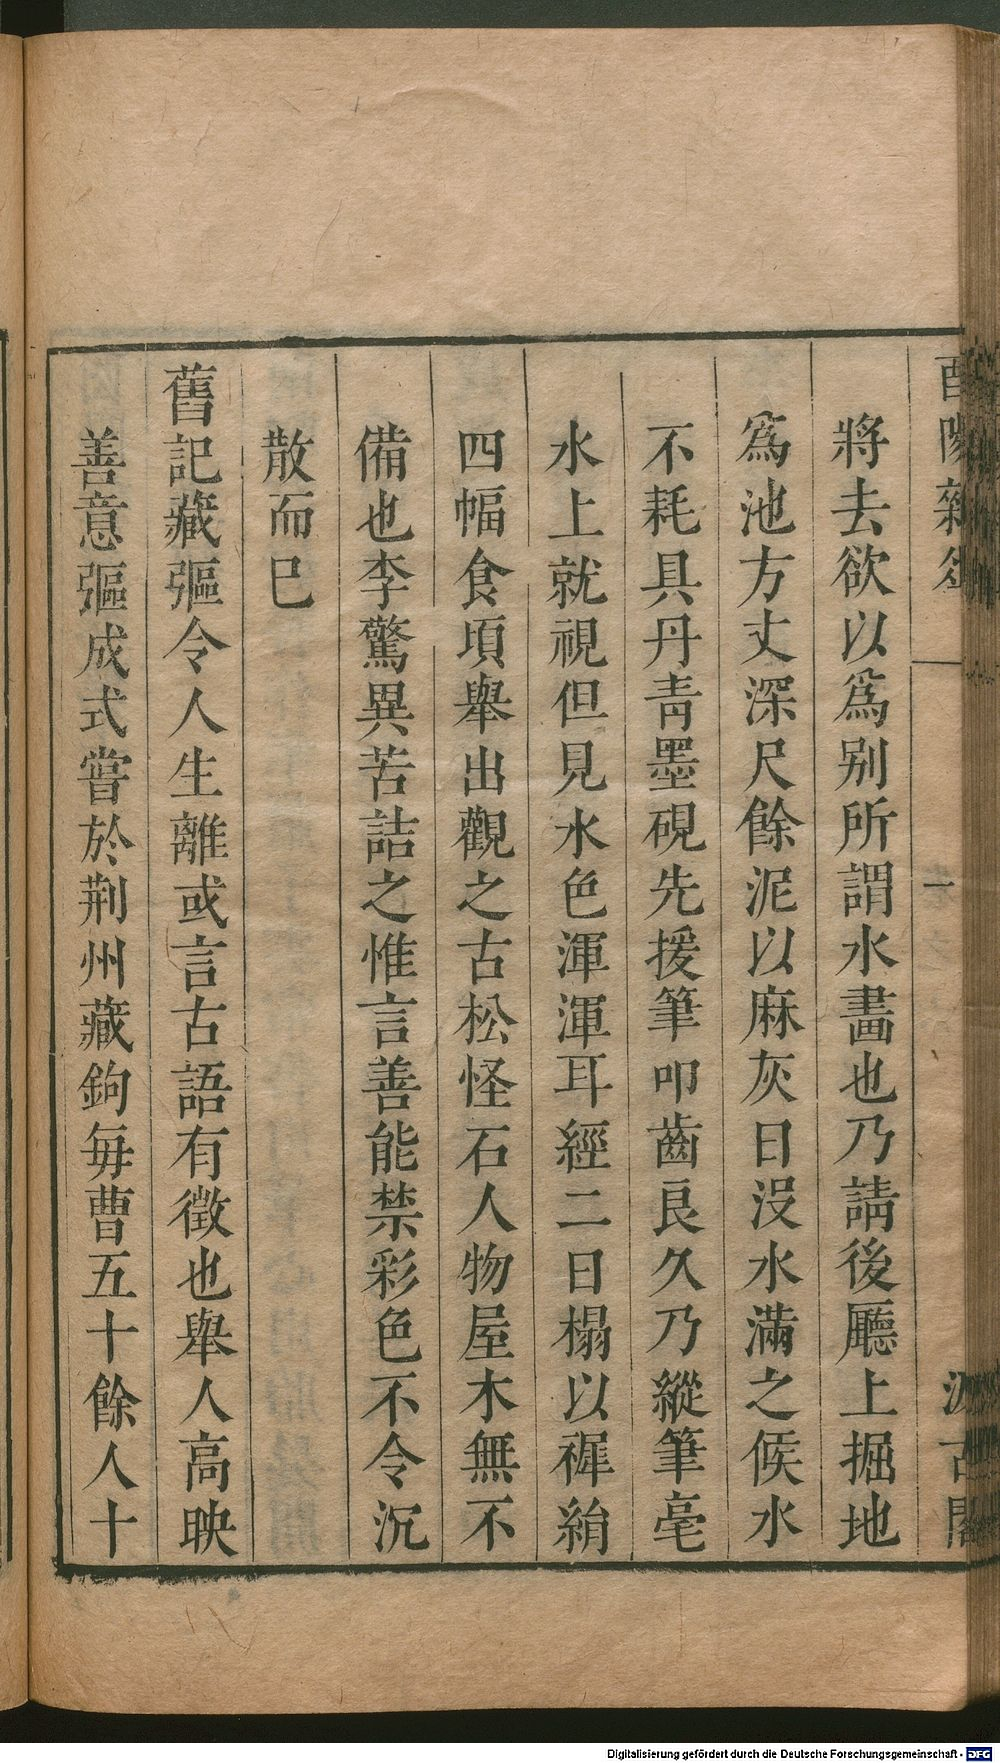 酉陽雜俎
汲古閣
將去欲以爲别所謂水畵也乃請後廳上掘地
爲池方丈深尺餘泥以麻灰日没水滿之候水
不耗具丹靑墨硯先援筆叩齒良久乃縱筆毫
水上就視但見水色渾渾耳經二日榻以穉絹
四幅食頃舉出觀之古松怪石人物屋木無不
備也李驚異苦詰之惟言善能禁彩色不令沉
散而巳
舊記藏彄令人生離或言古語有徵也舉人高映
善意彄成式嘗於荆州藏鉤每曹五十餘人十
Digitalisierung gefördert durch die Deutsche Forschungsgemeinschaft - DFG